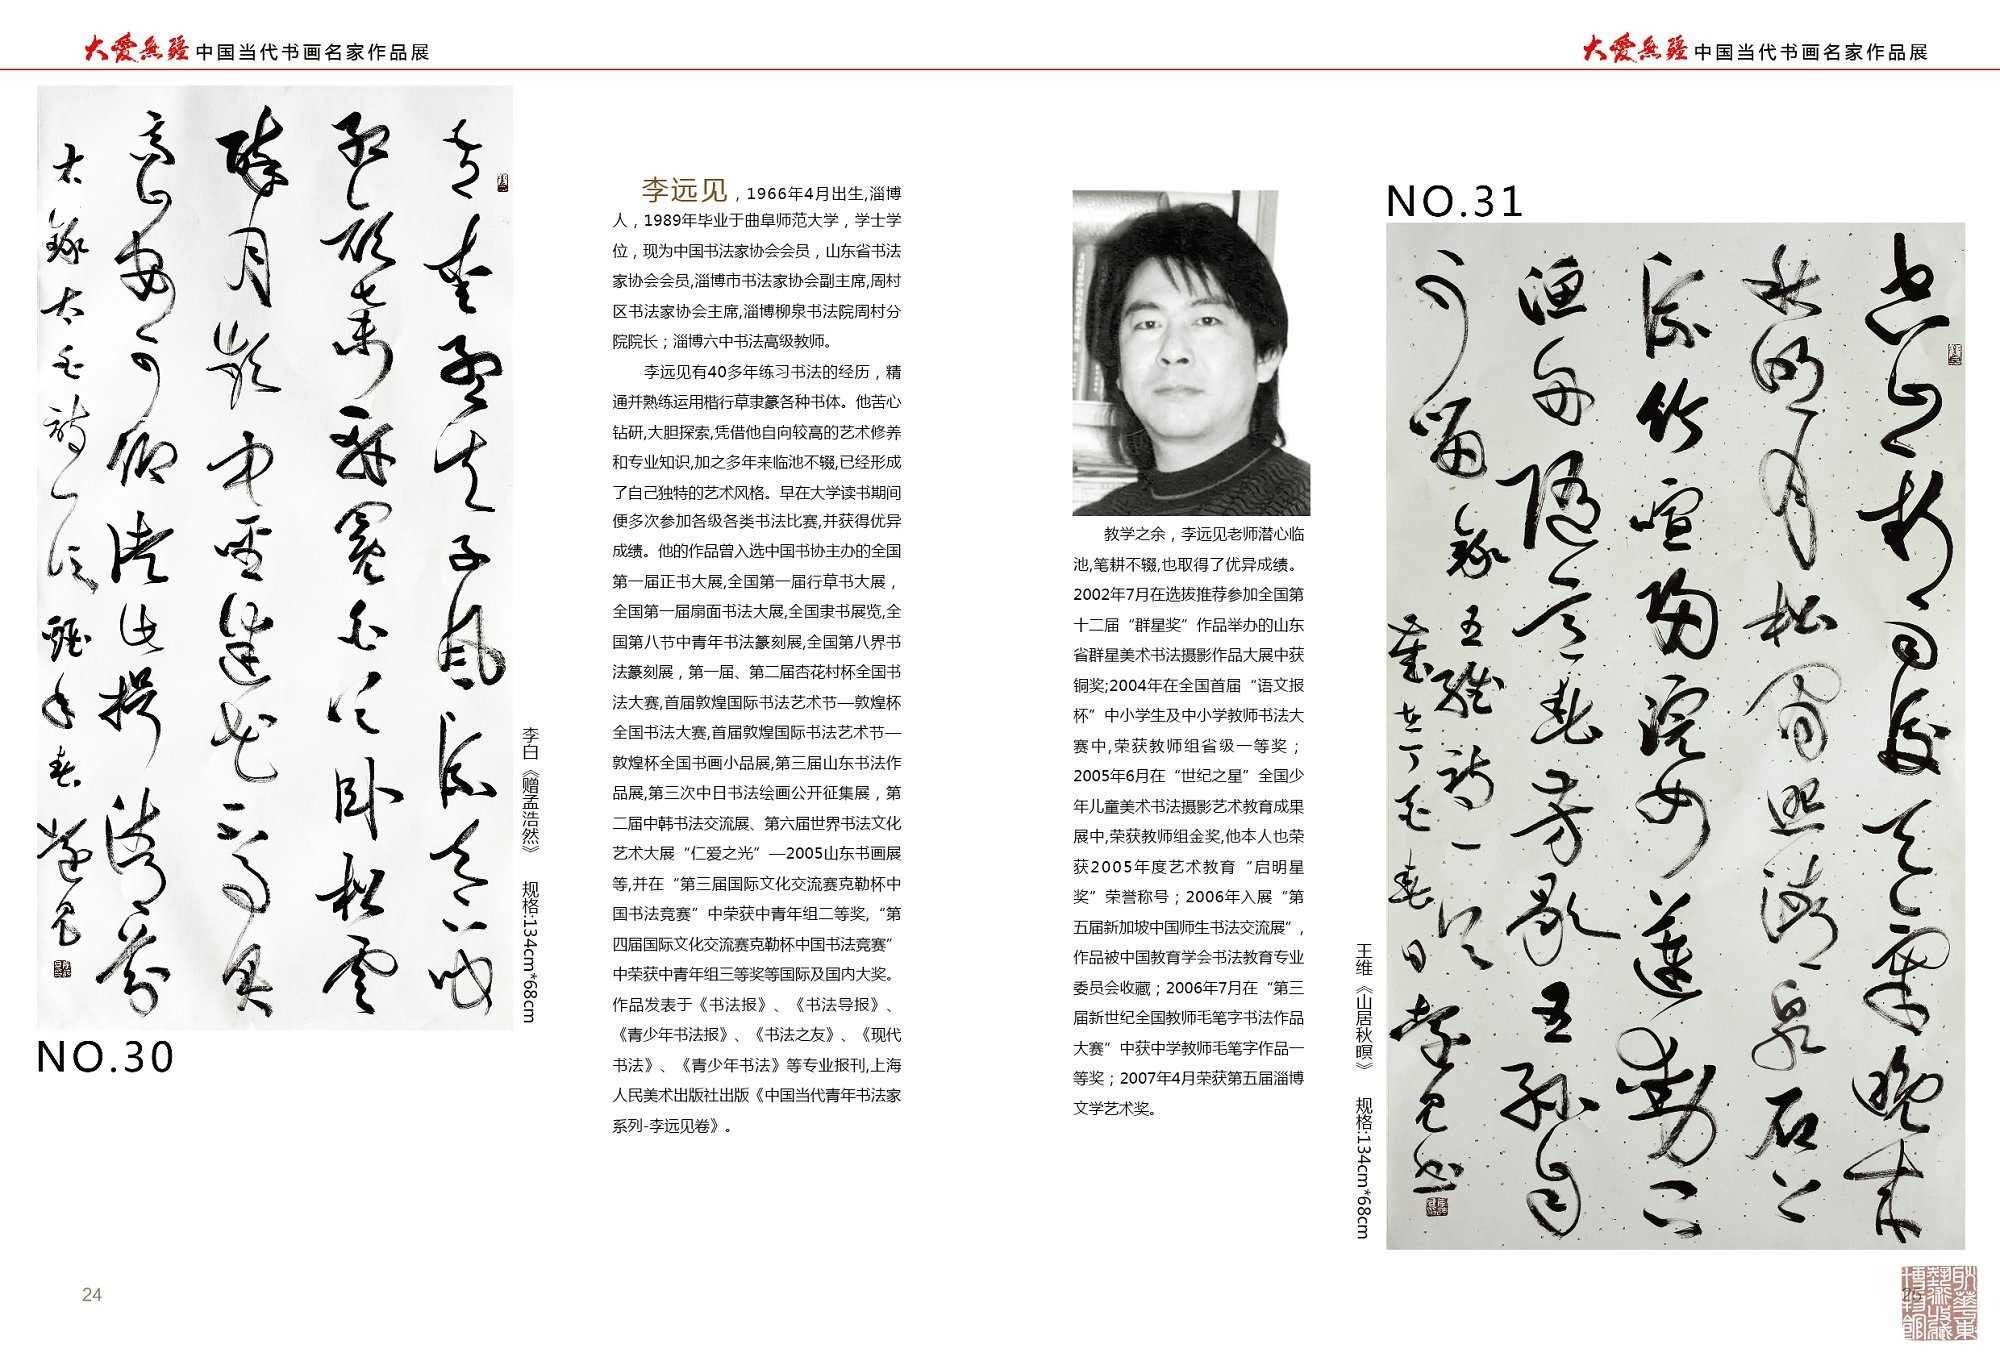 大愛無疆 中国当代书画名家作品展
吾愛孟夫子風流天下聞
紅顏棄軒冕白首卧松雲
醉月頻中聖迷花不事君
高山安可仰徒此揖清芬
NO.30
李白《赠孟浩然》 规格:134cm*68cm
李远见，1966年4月出生,淄博
人，1989年毕业于曲阜师范大学，学士学
位，现为中国书法家协会会员，山东省书法
家协会会员,淄博市书法家协会副主席,周村
区书法家协会主席,淄博柳泉书法院周村分
院院长；淄博六中书法高级教师。
李远见有40多年练习书法的经历，精
通并熟练运用楷行草隶篆各种书体。他苦心
钻研,大胆探索,凭借他自向较高的艺术修养
和专业知识,加之多年来临池不辍,已经形成
了自己独特的艺术风格。早在大学读书期间
便多次参加各级各类书法比赛,并获得优异
成绩。他的作品曾入选中国书协主办的全国
第一届正书大展,全国第一届行草书大展，
全国第一届扇面书法大展,全国隶书展览,全
国第八节中青年书法篆刻展,全国第八界书
法篆刻展，第一届、第二届杏花村杯全国书
法大赛,首届敦煌国际书法艺术节—敦煌杯
全国书法大赛,首届敦煌国际书法艺术节—
敦煌杯全国书画小品展,第三届山东书法作
品展,第三次中日书法绘画公开征集展，第
二届中韩书法交流展、第六届世界书法文化
艺术大展“仁爱之光”—2005山东书画展
等,并在“第三届国际文化交流赛克勒杯中
国书法竞赛”中荣获中青年组二等奖,“第
四届国际文化交流赛克勒杯中国书法竞赛”
中荣获中青年组三等奖等国际及国内大奖。
作品发表于《书法报》、《书法导报》、
《青少年书法报》、《书法之友》、《现代
书法》、《青少年书法》等专业报刊,上海
人民美术出版社出版《中国当代青年书法家
系列-李远见卷》。
24
大愛無疆 中国当代书画名家作品展
教学之余，李远见老师潜心临
池,笔耕不辍,也取得了优异成绩。
2002年7月在选拔推荐参加全国第
十二届“群星奖”作品举办的山东
省群星美术书法摄影作品大展中获
铜奖;2004年在全国首届“语文报
杯”中小学生及中小学教师书法大
赛中,荣获教师组省级一等奖；
2005年6月在“世纪之星”全国少
年儿童美术书法摄影艺术教育成果
展中,荣获教师组金奖,他本人也荣
获2005年度艺术教育“启明星
奖”荣誉称号；2006年入展“第
五届新加坡中国师生书法交流展”，
作品被中国教育学会书法教育专业
委员会收藏；2006年7月在“第三
届新世纪全国教师毛笔字书法作品
大赛”中获中学教师毛笔字作品一
等奖；2007年4月荣获第五届淄博
文学艺术奖。
王维《山居秋暝》 规格:134cm*68cm
NO.31
空山新雨後天氣晚來
秋明月松間照清泉石上
流竹喧歸浣女蓮動下
漁舟隨意春芳歇王孫自
可留
錄王維詩一首
25